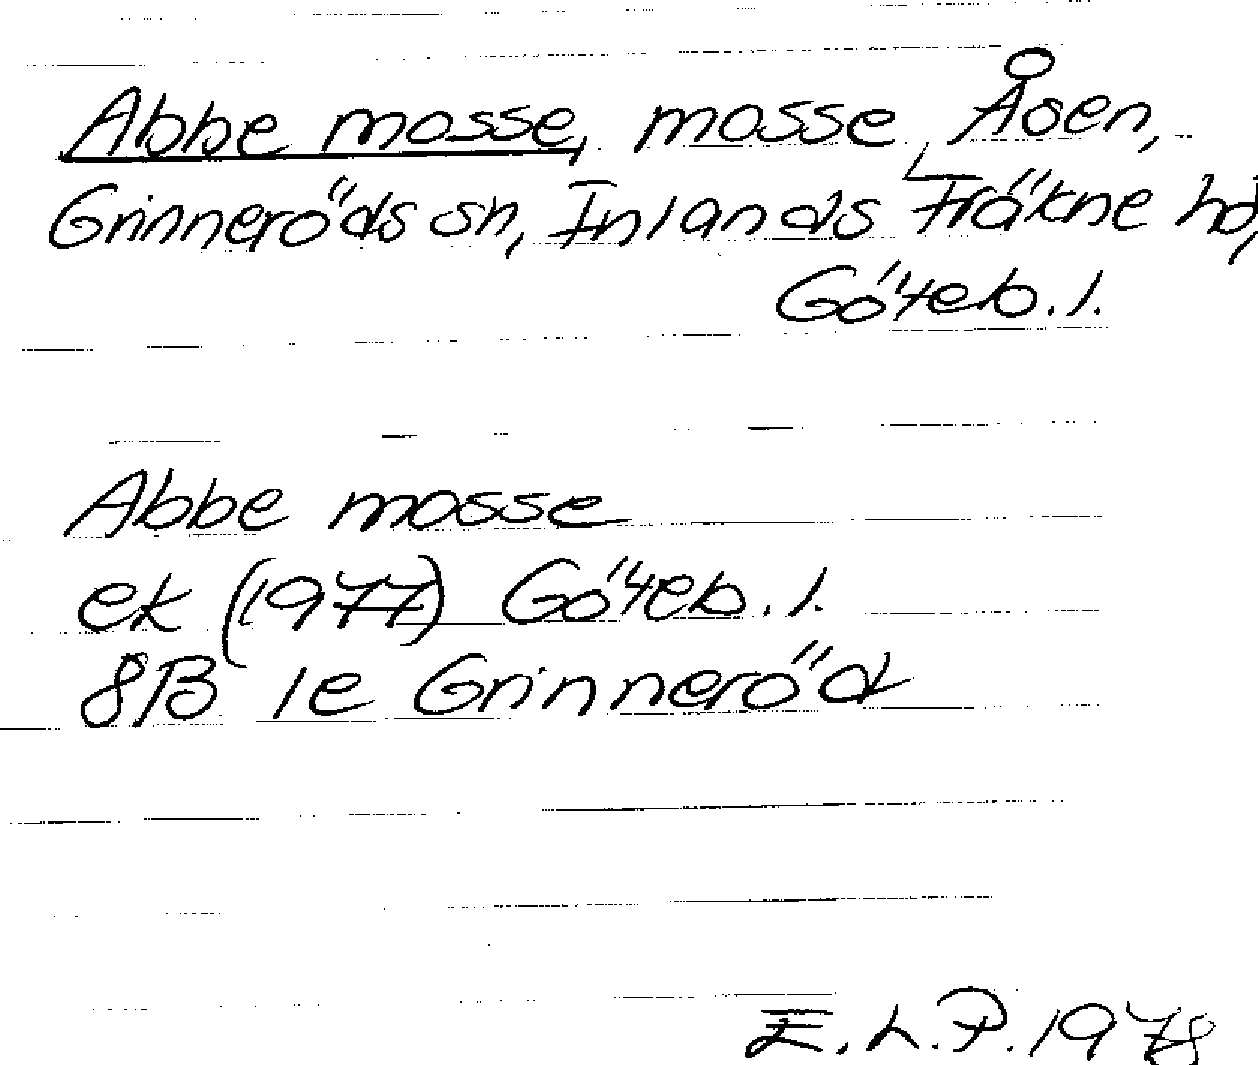 Abbe mosse, mosse Åsen,
Grinneröds sn, Inlands Fräkne hd,
Göteb. l.
Abbe mosse
ek (1977) Göteb. l.
8B 1e Grinneröd
E. L. P. 1978